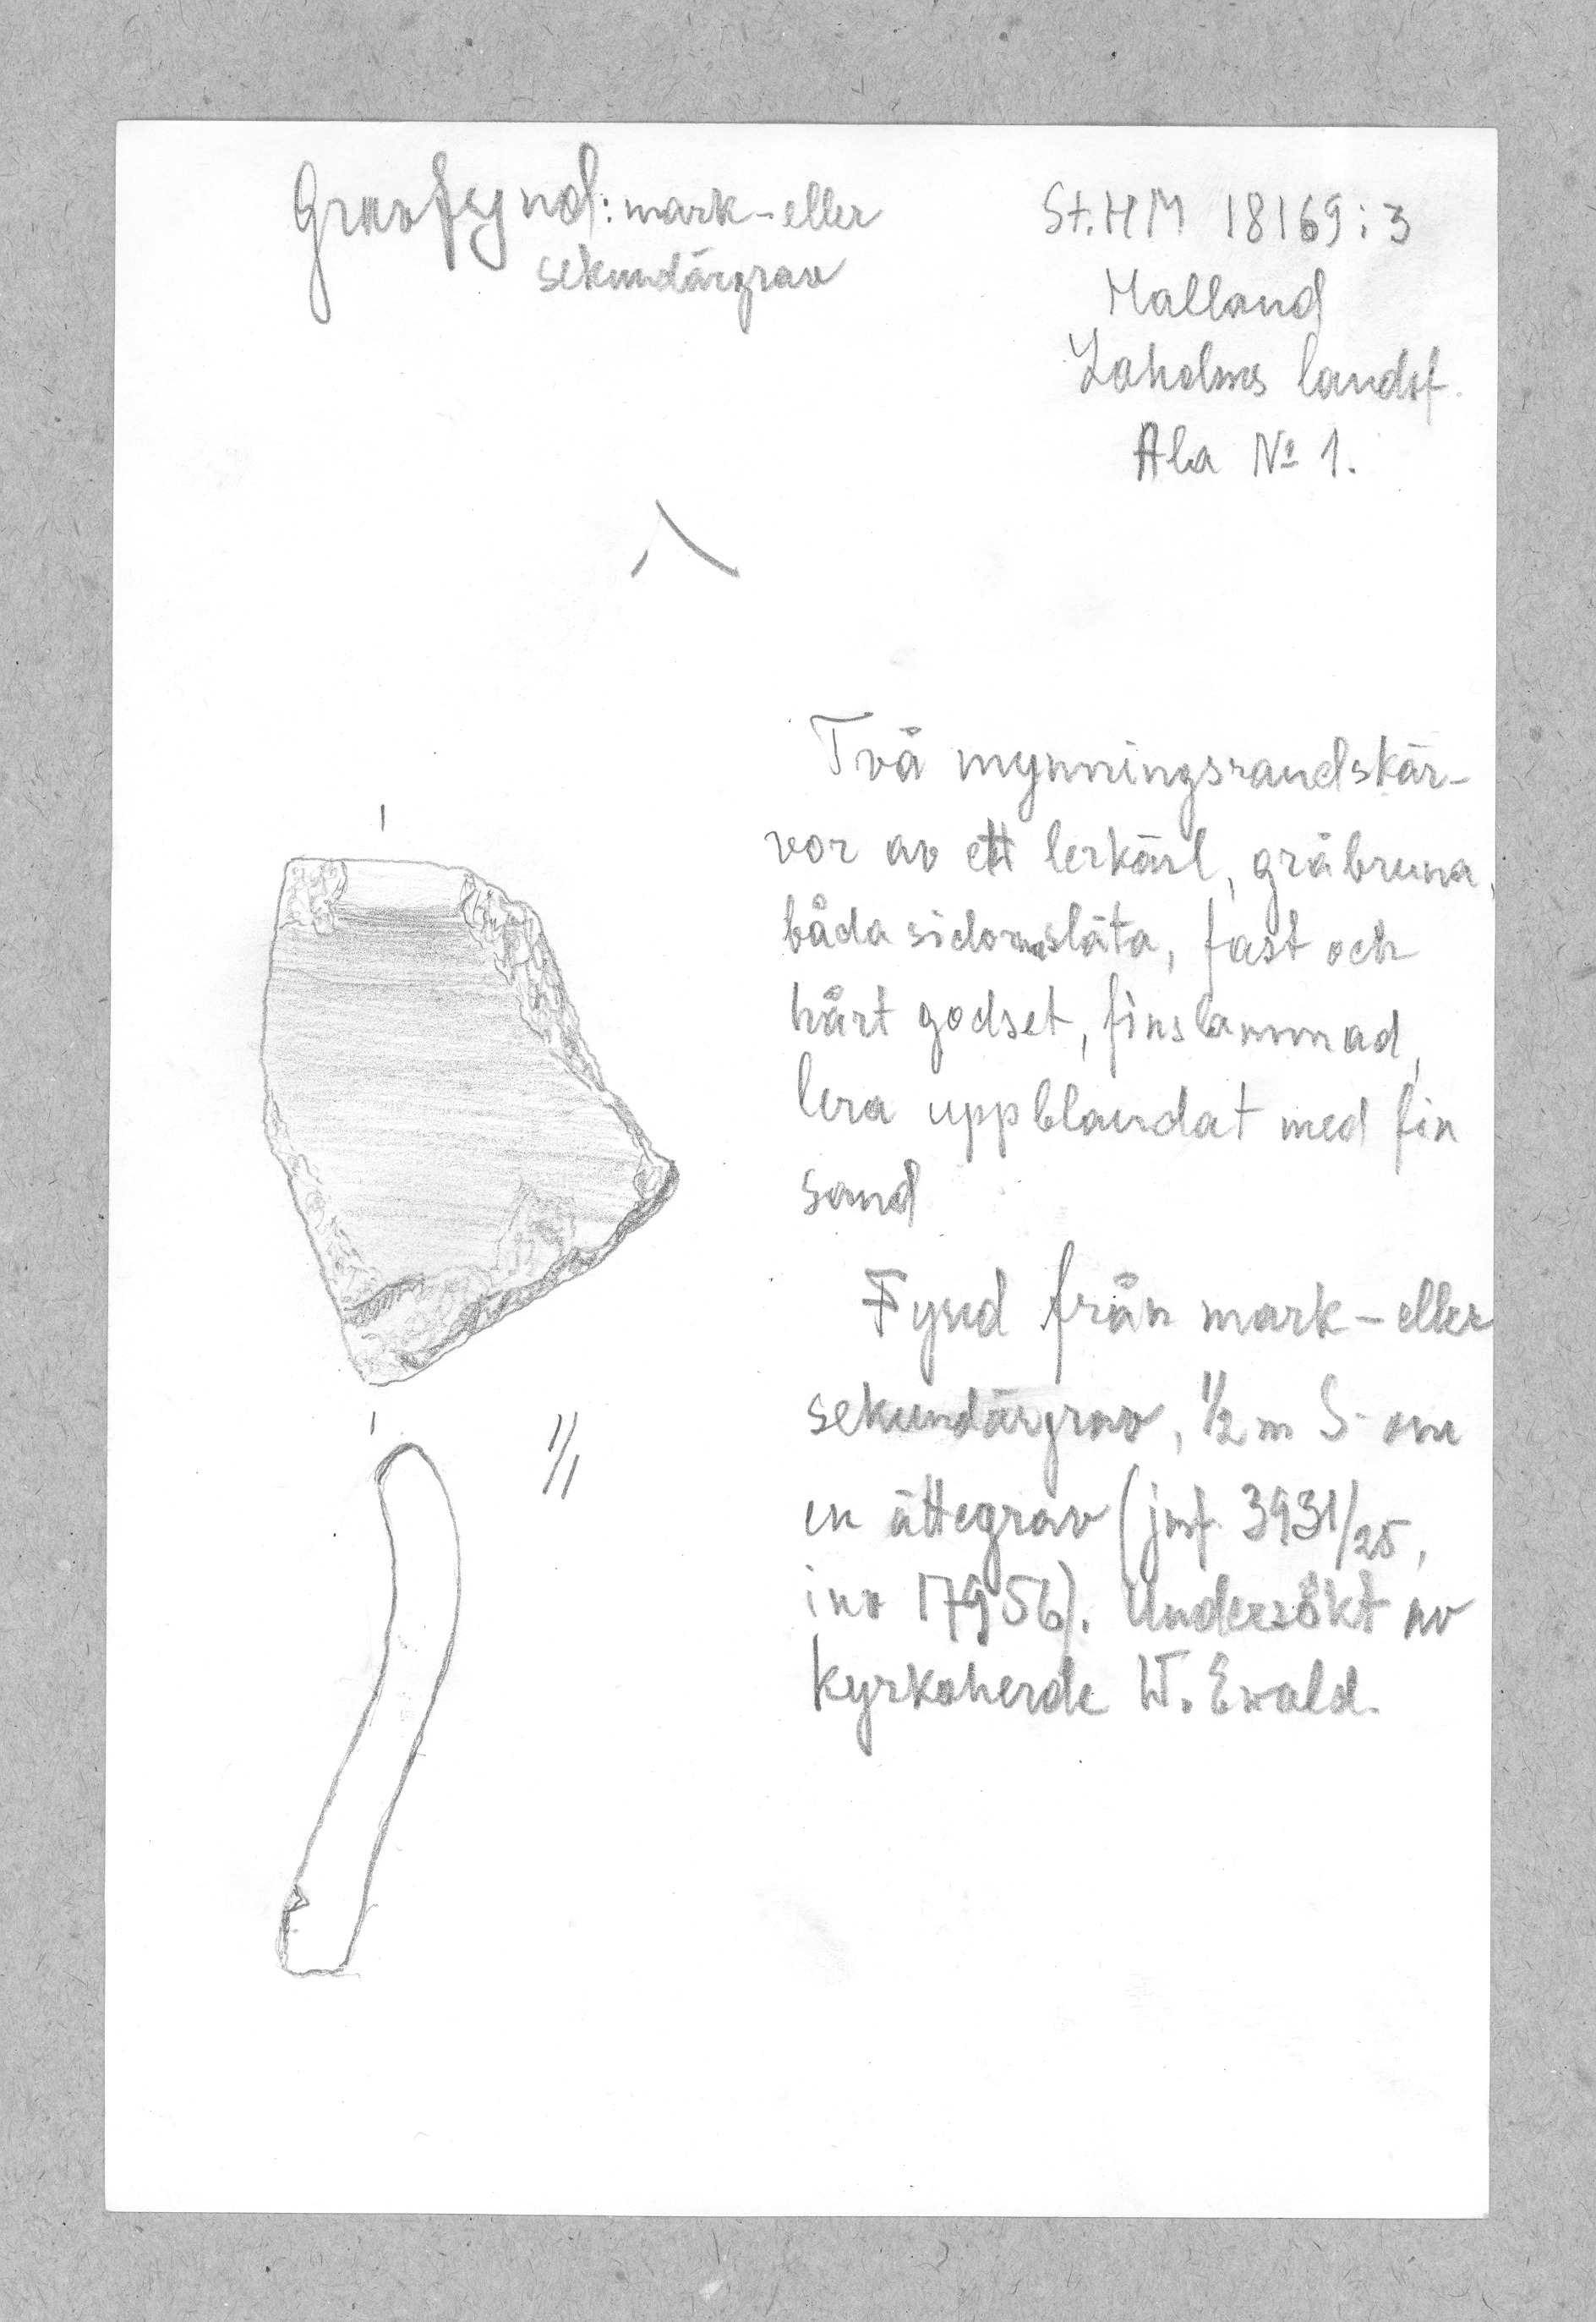 Gravfynd: mark- eller
sekundärgrav
St.HM 18169:3
Halland
Laholms landsf.
Ala № 1.
Två mynningsrandskär-
vor av ett lerkärl, gråbruna,
båda sidorna släta, fast och
hårt godset, finslammad,
lera uppblandat med fin
sand
Fynd från mark- eller
sekundärgrav, ½ m S om
en ättegrav (jmf. 3931/25,
inv 17956). Undersökt av
kyrkoherde W. Ewald.
1/1